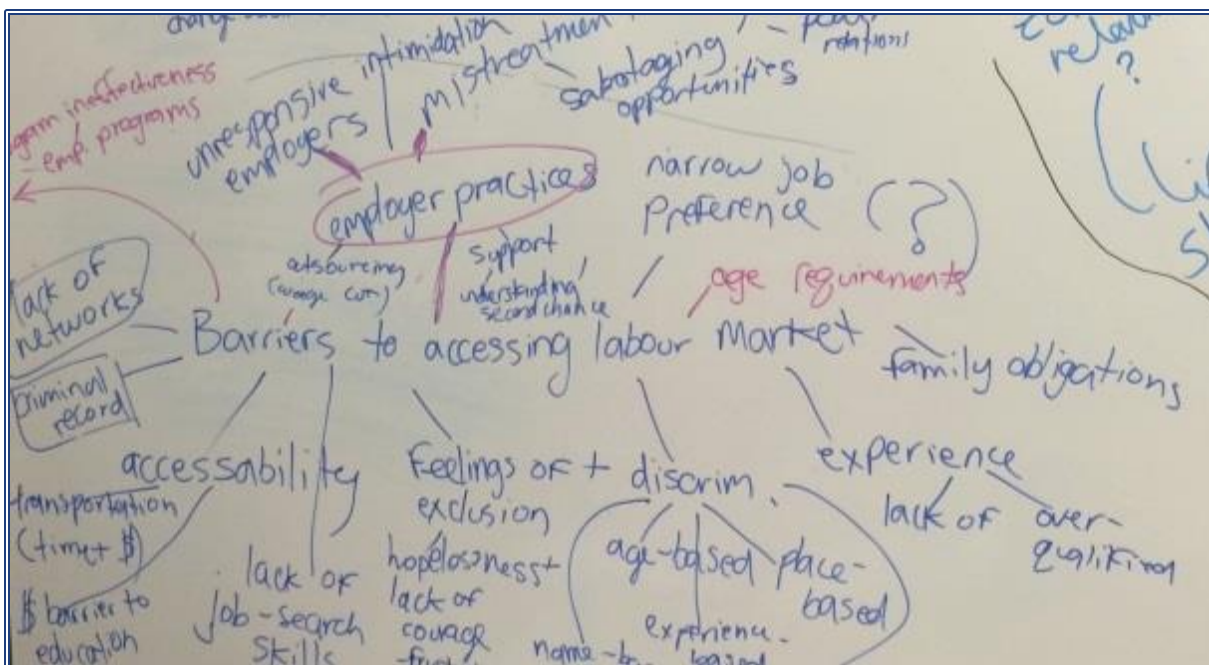 intimidation
mistreatmen
sabotaging
opportunities
relations
?
ineffectiveness
- emp. programs
unresponsive
employers
employer practices
narrow job
preference
(?)
outsourcing
support
understanding/
second chance
age requirements
lack of
networks
Barriers to accessing labour market
family obligations
criminal
record
accessability
feelings of +
exclusion
discrim.
experience
lack of
over-
transportation
(time + $)
$ barrier to
education
lack of
job-search
skills
hopelossness +
lack of
courage
age-based
place-
based
experience-
based